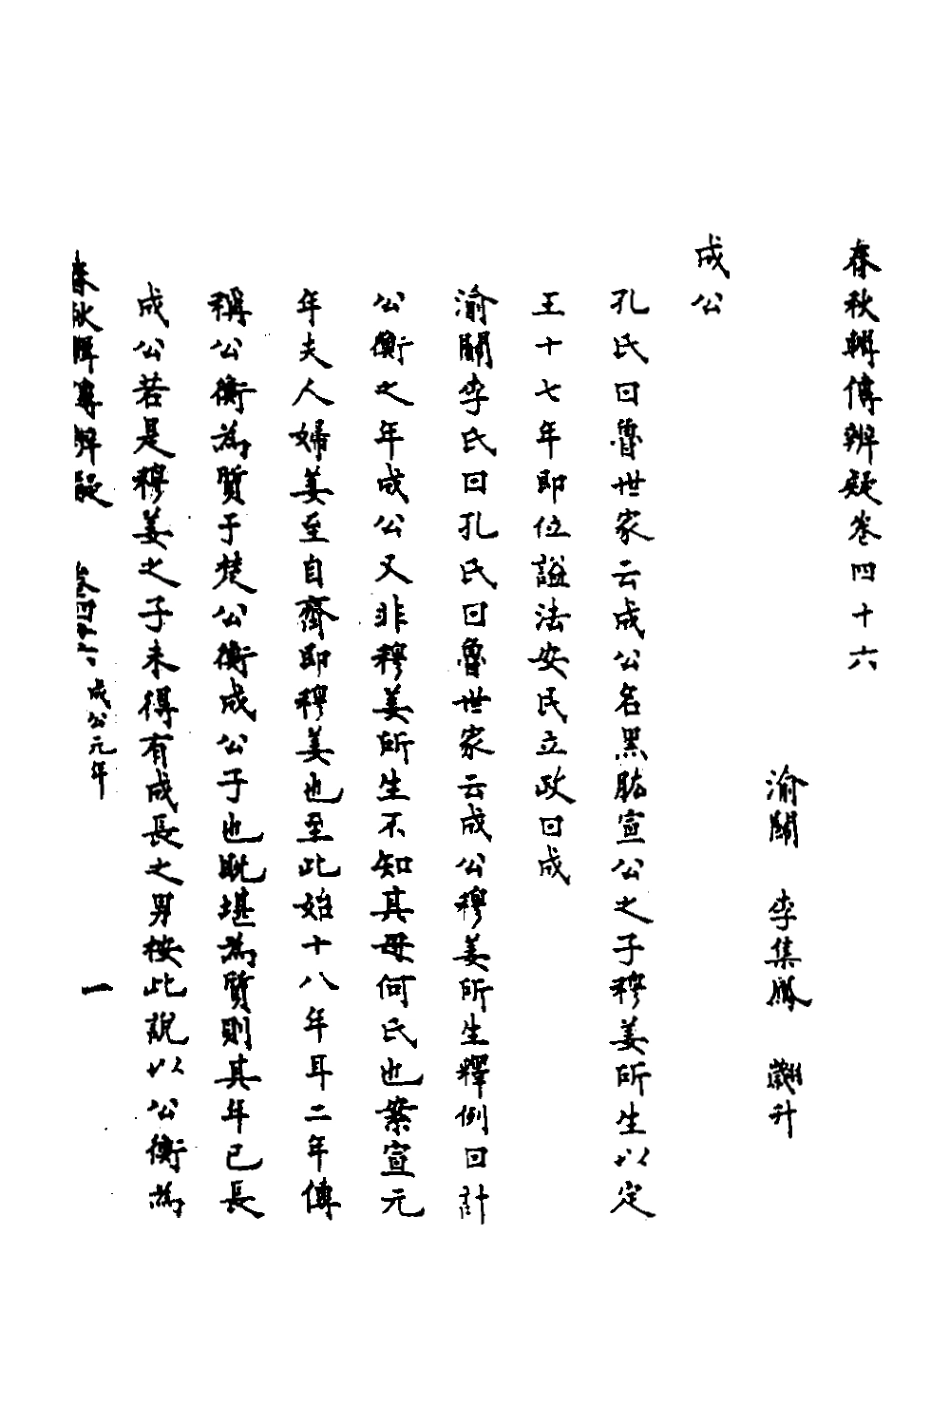 春秋輯傳辨疑卷四十六
渝關 李集鳳 翽升
成公
孔氏曰魯世家云成公名黑肱宣公之子穆姜所生以定
王十七年即位諡法安民立政曰成
渝關李氏曰孔氏曰魯世家云成公穆姜所生釋例曰計
公衡之年成公又非穆姜所生不知其母何氏也案宣元
年夫人婦姜至自齊即穆姜也至此始十八年耳二年傳
稱公衡為質于楚公衡成公子也既堪為質則其年已長
成公若是穆姜之子未得有成長之男桉此說以公衡為
春秋輯傳辨疑 卷四十六 成公元年 一